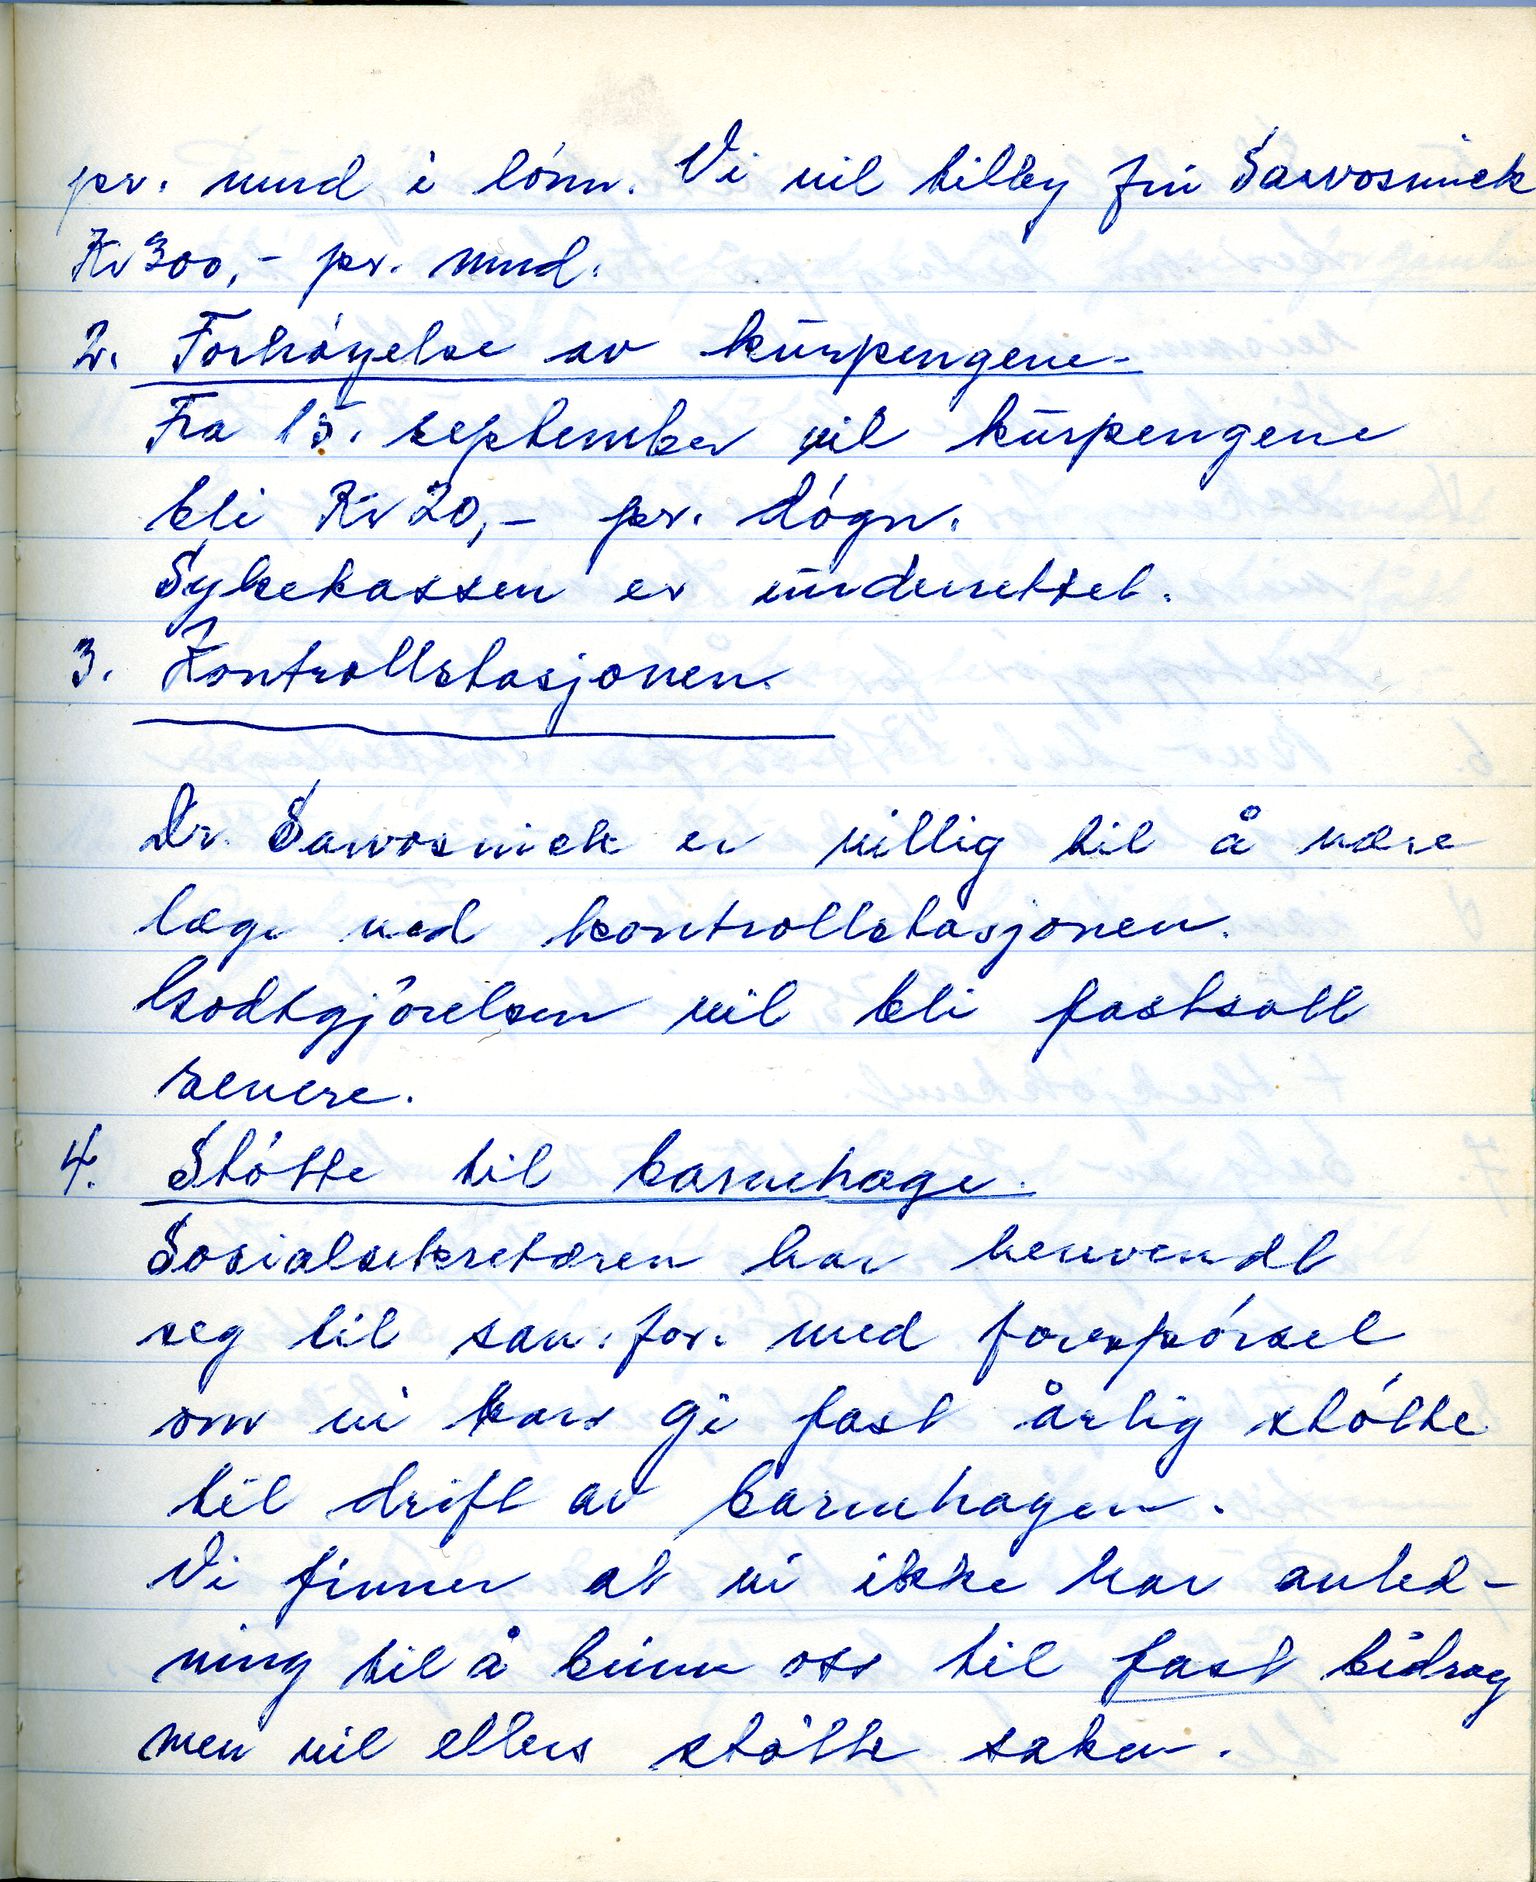 pr. mnd i lønn. Vi vil tilby fru Sawosnick
Kr 300,- pr. mnd.
2. Forhøyelse av kurpengene.
Fra 15. september vil kurpengene
bli Kr 20,- pr. døgn.
Sykekassen er underrettet.
3. Kontrollstasjonen.
Dr. Sawosnick er villig til å være
læge ved kontrollstasjonen.
Godtgjørelsen vil bli fastsatt
senere.
4. Støtte til barnehage.
Sosialsekretæren har henvendt
seg til san. for. med forespørsel
om vi kan gi fast årlig støtte
til drift av barnehagen.
Vi finner at vi ikke har anled-
ning til å binne oss til fast bidrag
men vil ellers støtte saken.